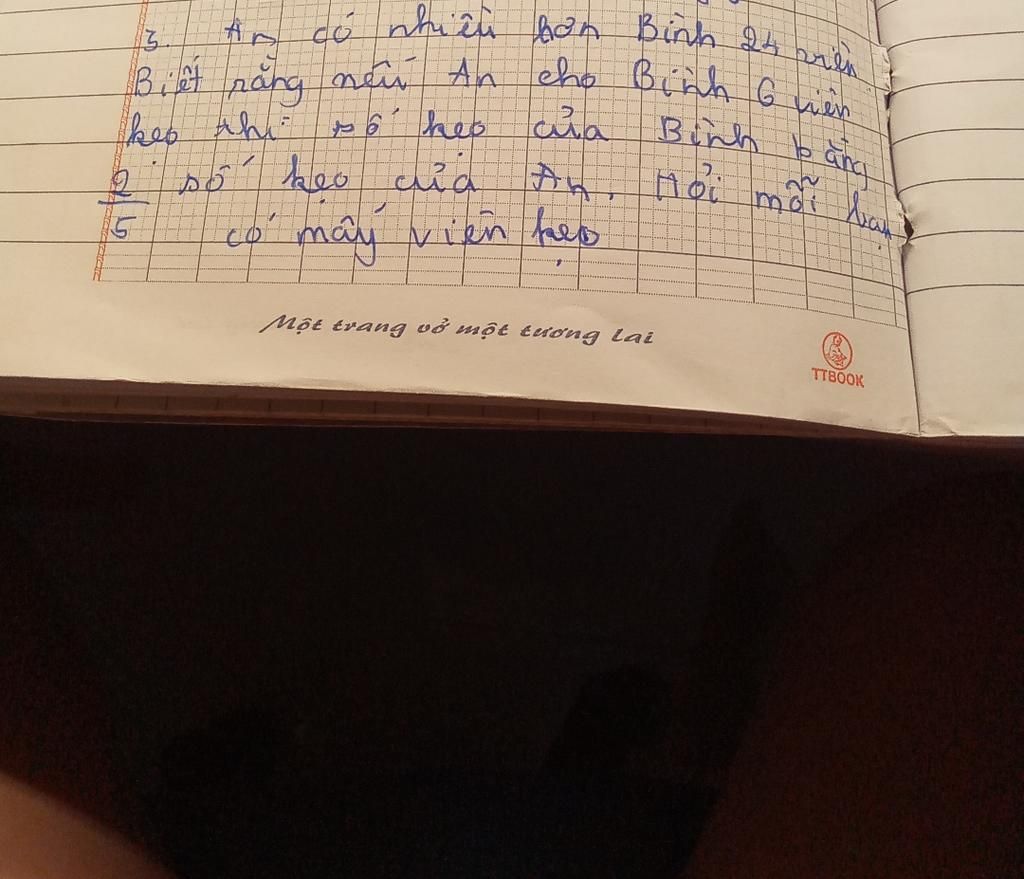 3. An có nhiều hơn Bình 24 viên
Biết rằng nếu An cho Bình 6 viên
kẹo thì số kẹo của Bình bằng
2/5 số kẹo của An. Hỏi mỗi bạn
có mấy viên kẹo
Một trang vở một tương lai
TTBOOK